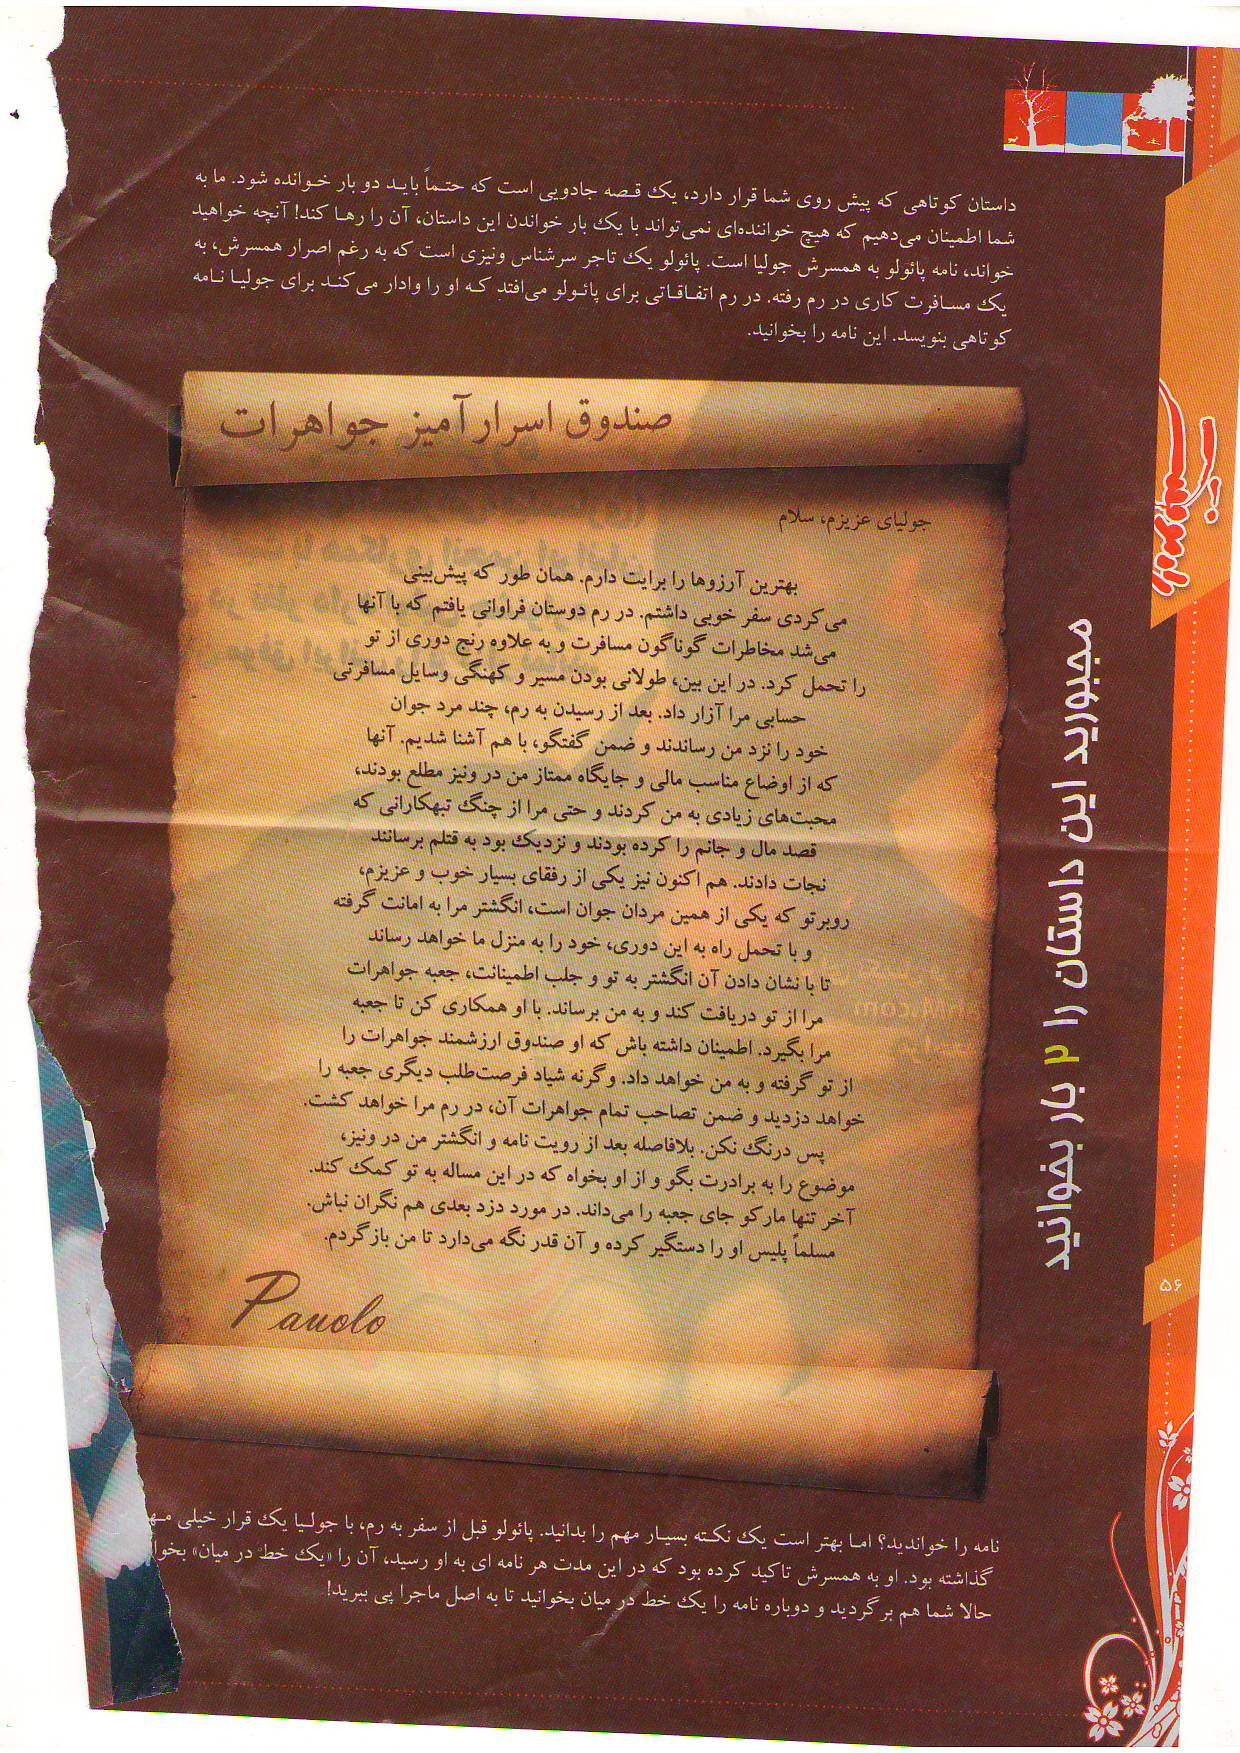 داستان کوتاهی که پیش روی شما قرار دارد، یک قصه جادویی است که حتماً باید دو بار خوانده شود. ما به
شما اطمینان می‌دهیم که هیچ خواننده‌ای نمی‌تواند با یک بار خواندن این داستان، آن را رها کند! آنچه خواهید
خواند، نامه پائولو به همسرش جولیا است. پائولو یک تاجر سرشناس ونیزی است که به رغم اصرار همسرش، به
یک مسافرت کاری در رم رفته. در رم اتفاقاتی برای پائولو می‌افتد که او را وادار می‌کند برای جولیا نامه
کوتاهی بنویسد. این نامه را بخوانید.
صندوق اسرارآمیز جواهرات
جولیای عزیزم، سلام
بهترین آرزوها را برایت دارم. همان طور که پیش‌بینی
می‌کردی سفر خوبی داشتم. در رم دوستان فراوانی یافتم که با آنها
می‌شد مخاطرات گوناگون مسافرت و به علاوه رنج دوری از تو
را تحمل کرد. در این بین، طولانی بودن مسیر و کهنگی وسایل مسافرتی
حسابی مرا آزار داد. بعد از رسیدن به رم، چند مرد جوان
خود را نزد من رساندند و ضمن گفتگو، با هم آشنا شدیم. آنها
که از اوضاع مناسب مالی و جایگاه ممتاز من در ونیز مطلع بودند،
محبت‌های زیادی به من کردند و حتی مرا از چنگ تبهکارانی که
قصد مال و جانم را کرده بودند و نزدیک بود به قتلم برسانند
نجات دادند. هم اکنون نیز یکی از رفقای بسیار خوب و عزیزم،
روبرتو که یکی از همین مردان جوان است، انگشتر مرا به امانت گرفته
و با تحمل راه به این دوری، خود را به منزل ما خواهد رساند
تا با نشان دادن آن انگشتر به تو و جلب اطمینانت، جعبه جواهرات
مرا از تو دریافت کند و به من برساند. با او همکاری کن تا جعبه
مرا بگیرد. اطمینان داشته باش که او صندوق ارزشمند جواهرات را
از تو گرفته و به من خواهد داد. وگرنه شیاد فرصت‌طلب دیگری جعبه را
خواهد دزدید و ضمن تصاحب تمام جواهرات آن، در رم مرا خواهد کشت.
پس درنگ نکن. بلافاصله بعد از رویت نامه و انگشتر من در ونیز،
موضوع را به برادرت بگو و از او بخواه که در این مساله به تو کمک کند.
آخر تنها مارکو جای جعبه را می‌داند. در مورد دزد بعدی هم نگران نباش.
مسلماً پلیس او را دستگیر کرده و آن قدر نگه می‌دارد تا من بازگردم.
Pauolo
نامه را خواندید؟ اما بهتر است یک نکته بسیار مهم را بدانید. پائولو قبل از سفر به رم، با جولیا یک قرار خیلی
گذاشته بود. او به همسرش تاکید کرده بود که در این مدت هر نامه ای به او رسید، آن را «یک خط در میان»
حالا شما هم برگردید و دوباره نامه را یک خط در میان بخوانید تا به اصل ماجرا پی ببرید!
مجبورید این داستان را ۲ بار بخوانید
۵۶